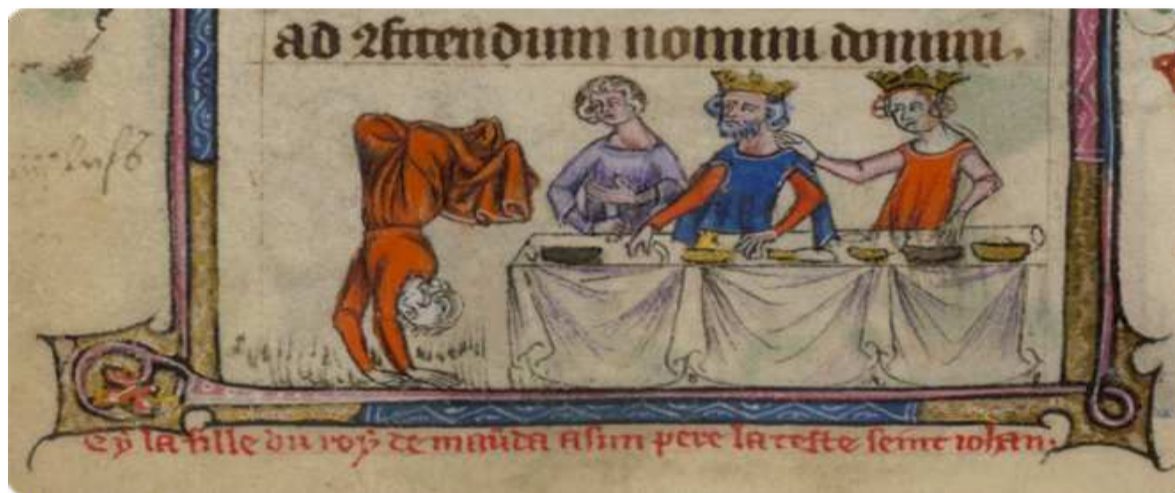 ad ꝯfitendum nomini domini.
Cy la fille du roy demaunda a sun pere la teste seint iohan.